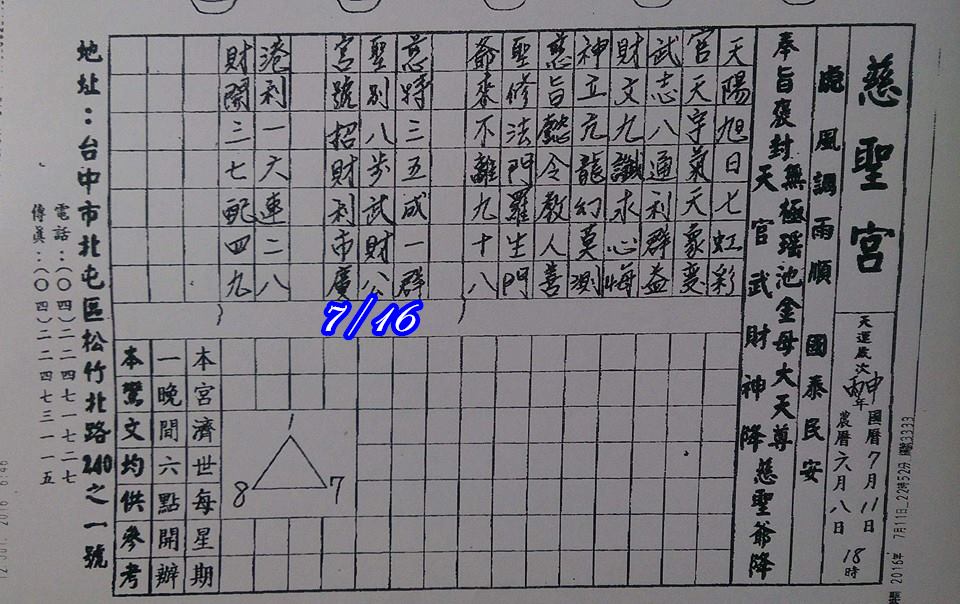 慈聖宮
天運歲次丙申年
國曆7月11日
農曆六月八日
18時
風調雨順
國泰民安
奉旨褒封無極瑤池金母大天尊
天官武財神降
慈聖爺降
天陽旭日七虹彩
官天宇氣天象變
武志八通利群益
財文九讖求心悔
神立元龍幻莫測
慈旨懿令教人善
聖修法門羅生門
爺來不離九十八
慈特三五成一群
聖別八步武財公
宮號招財利市廣
港利一六連二八
財開三七配四九
7/16
1
8
7
本宮濟世每星期
一晚間六點開辦
本鸞文均供參考
地址：台中市北屯區松竹北路240之一號
電話：(〇四)二二四七一七二七
傳真：(〇四)二二四七三一一五
2016年 7月11日 22時52分
12 Jul. 2016 6:46